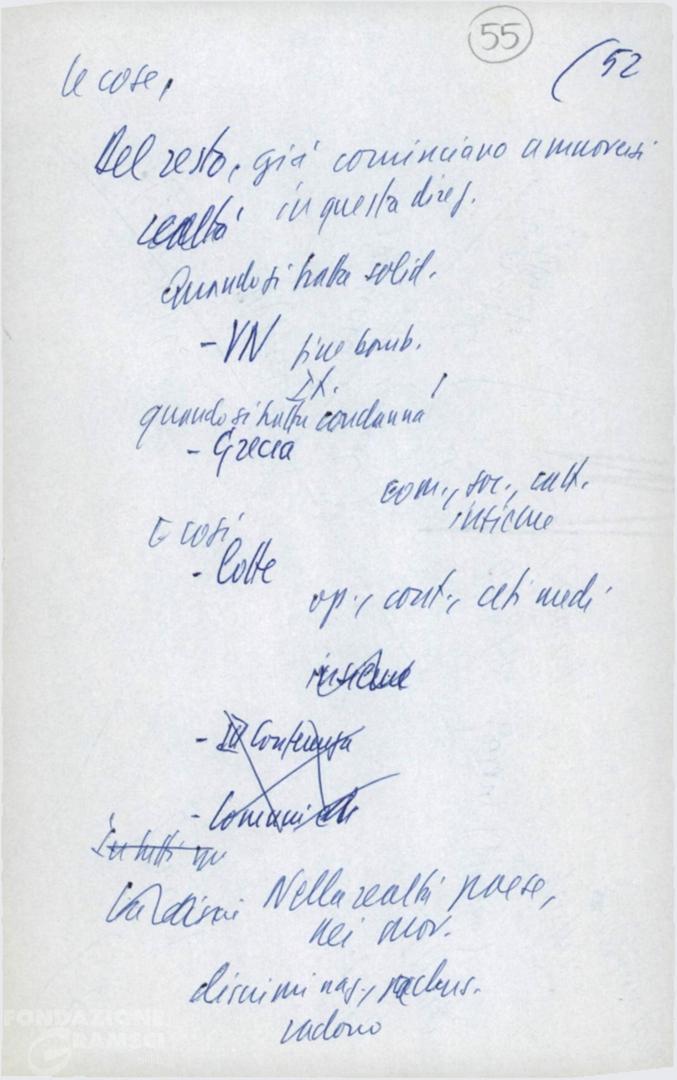 55
(52
le cose,
Del resto, già cominciano a muoversi
realtà in questa direz.
Quando si tratta solid.
- VN fine bomb.
quando si tratta condanna
- Grecia
com., soc., catt.
insieme
E così
- lotte
op., cont., ceti medi
insieme
- III Conferenza
- Comuni
In tutti
Nella realtà paese,
nei mov.
discriminaz.,
cadono
FONDAZIONE
GRAMSCI